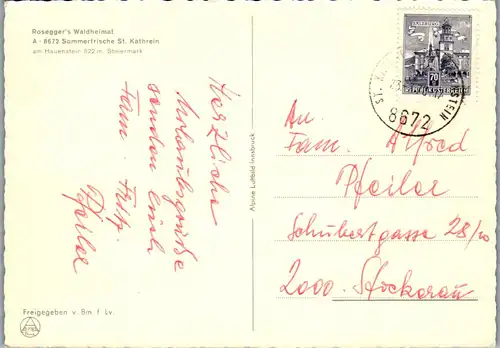 Rosegger's Waldheimat
A - 8672 Sommerfrische St. Kathrein
am Hauenstein 822 m, Steiermark
SALZBURG
70
REPUBLIK ÖSTERREICH
8672
Herzliche
Urlaubsgrüße
senden Euch
Fam. Fritz
Pfeiler
Alpine Luftbild Innsbruck
An.
Fam. Alfred
Pfeiler
Schubertgasse 28/
2000 - Stockerau
Freigegeben v. Bm f Lv.